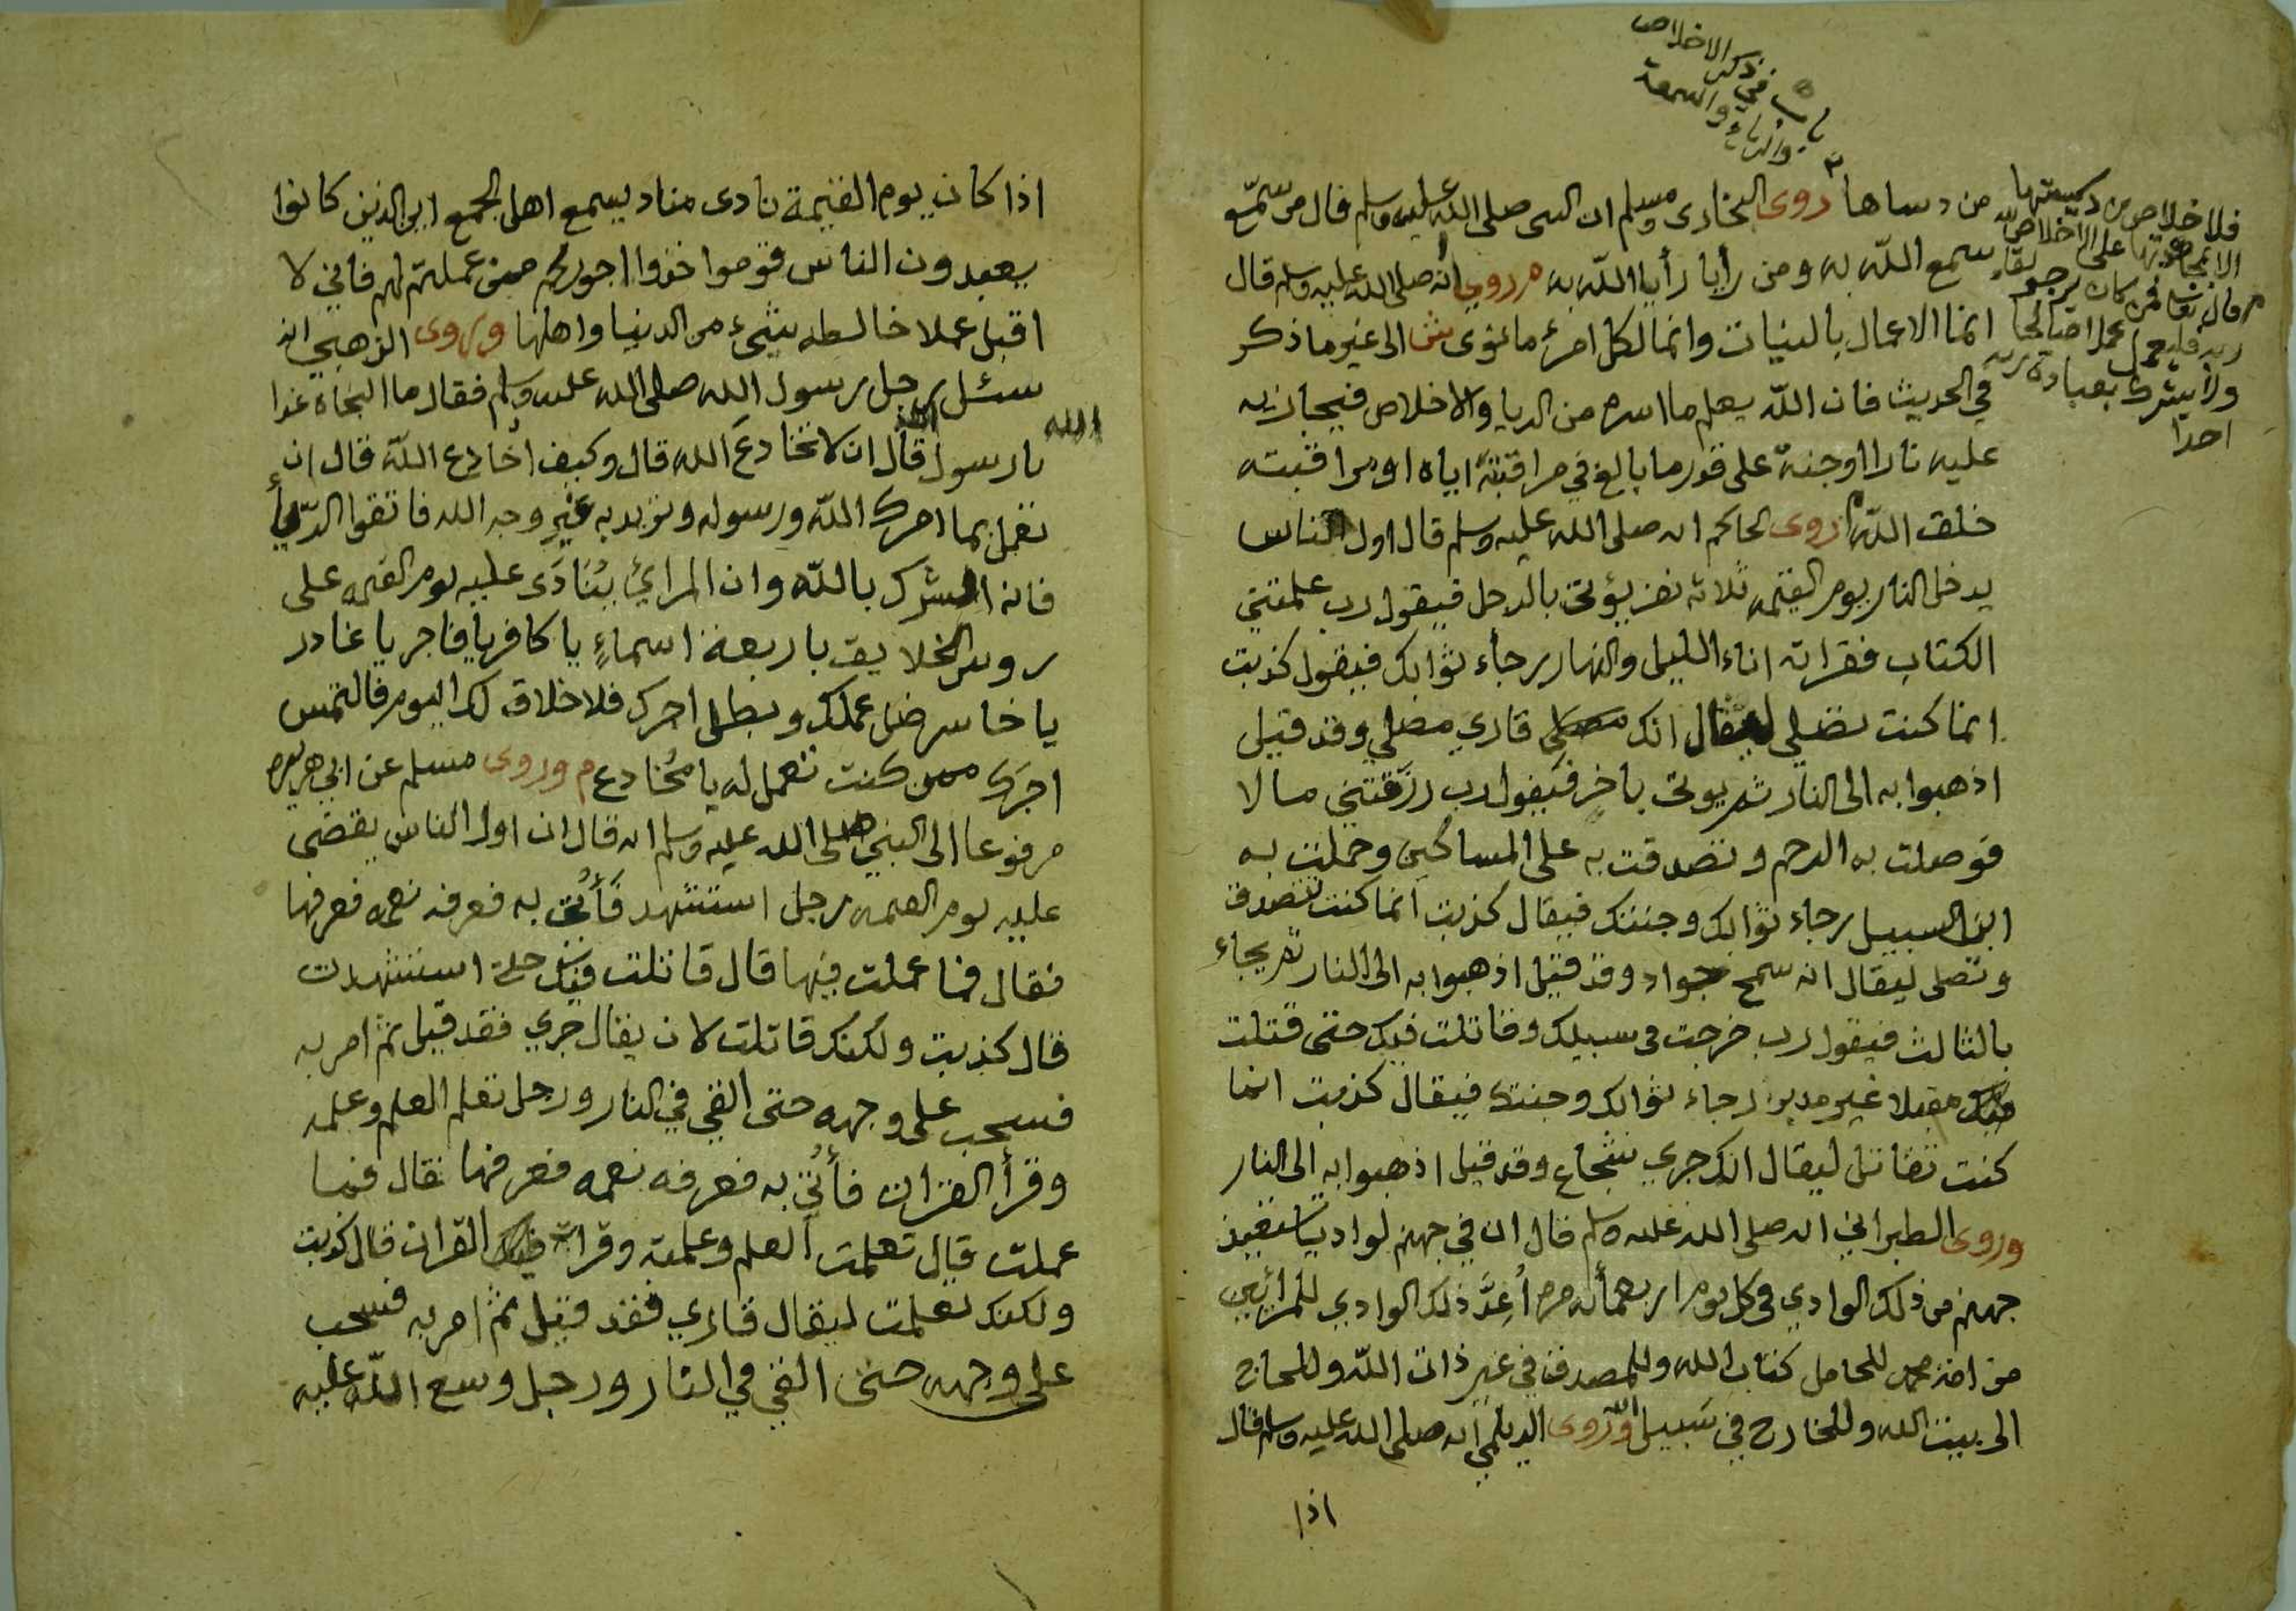 باب في ذكر الاخلاص
والرياء والسمعة
فلا خلاص من دسيستها
الا بمجاهدتها على الاخلاص لله
م قال تعالى فمن كان يرجو لقاء
ربه فليعمل عملا صالحا
ولا يشرك بعبادة ربه
احدا
من دساها روى البخارى ومسلم ان النبى صلى الله عليه وسلم قال من سمّع
سمع اللّه به ومن رأيا رأيا اللّه به م وروي انه صلى الله عليه وسلم قال
انما الاعمال بالنيات وانما لكل امرئ ما نوى ش الى غير ما ذكر
في الحديث فان اللّه يعلم ما اسره من الريا والاخلاص فيجازيه
عليه نارا او جنة على قدر ما بالغ في مراقبته اياه او مراقبته
خلق اللّه م روى الحاكم انه صلى الله عليه وسلم قال اول الناس
يدخل النار يوم القيمه ثلاثة نفر يؤتى بالرجل فيقول رب علمتني
الكتاب فقراته اناء الليل والنهار رجاء ثوابك فيقول كذبت
انما كنت تصلي ليقال انك قاري مصلي وقد قيل
اذهبوا به الى النار ثم يوتى باخر فيقول رب رزقتني مالا
فوصلت به الرحم وتصدقت به على المساكين وحملت به
ابن السبيل رجاء ثوابك وجنتك فيقال كذبت انما كنت تتصدق
وتصلى ليقال انه سمح جواد وقد قيل اذهبوا به الى النار ثم يجاء
بالثالث فيقول رب خرجت فى سبيلك وقاتلت فيك حتى قتلت
مقبلا غير مدبر رجاء ثوابك وجنتك فيقال كذبت انما
كنت تقاتل ليقال انك جري شجاع وقد قيل اذهبوا به الى النار
وروى الطبراني انه صلى الله عليه وسلم قال ان في جهنم لواديا تستعيذ
جهنم من ذلك الوادي في كل يوم اربعمأئه مره اُعِدَّ ذلك الوادي للمرائين
من امة محمد للحامل كتاب الله وللمصدق في غير ذات اللّه وللحاج
الى بيت الله وللخارج في سبيل الله وروى الديلمي انه صلى الله عليه وسلم قال
اذا
اذا كان يوم القيمة نادى مناد يسمع اهل الجمع اين الذين كانوا
يعبدون الناس قوموا خذوا اجوركم ممن عملتم لهم فاني لا
اقبل عملا خالطه شيء من الدنيا واهلها وروى الذهبي انه
سئل رجل رسول الله صلى الله عليه وسلم فقال ما النجاة غدا
يا رسول الله قال ان لا تخادع الله قال وكيف اُخادع اللّه قال ان
تعمل بما امرك اللّه ورسوله وتريد به غير وجه الله فاتقوا الرّيأ
فانه الشرك باللّه وان المرائي يُنَادَى عليه يوم القيمه على
روس الخلايق باربعة اسماءٍ يا كافر يا فاجر يا غادر
يا خاسر ضل عملك وبطل اجرك فلا خلاق لك اليوم فالتمس
اجرك ممن كنت تعمل له يا مُخادع م وروى مسلم عن ابي هريره
مرفوعا الى النبي صلى الله عليه وسلم انه قال ان اول الناس يقضى
عليه يوم القيمه رجل استشهد فَأُتى به فعرفه نعمه فعرفها
فقال فما عملت فيها قال قاتلت فيك حتى استشهدت
قال كذبت ولكنك قاتلت لان يقال جري فقد قيل ثم امر به
فسحب على وجهه حتى القي في النار ورجل تعلم العلم وعلمه
وقرأ القران فأُتي به فعرفه نعمه فعرفها فقال فما
عملت قال تعلمت العلم وعلمته وقرات فيك القران قال كذبت
ولكنك تعلمت ليقال قاري فقد قيل ثم امر به فسحب
على وجهه حتى القي في النار ورجل وسع اللّه عليه